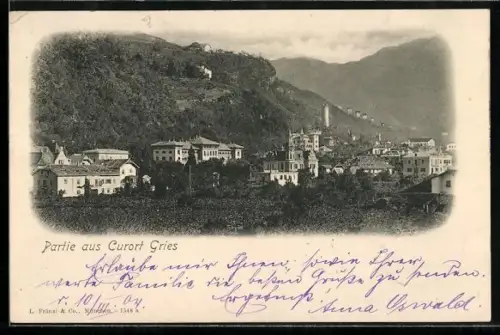 Partie aus Curort Gries
Erlaube mir Ihnen, sowie Ihrer
werte Familie die besten Grüße zu senden.
d. 10/III. 04. ergebenst Anna Oswald.
L. Fränzl & Co., München. - 1548 a